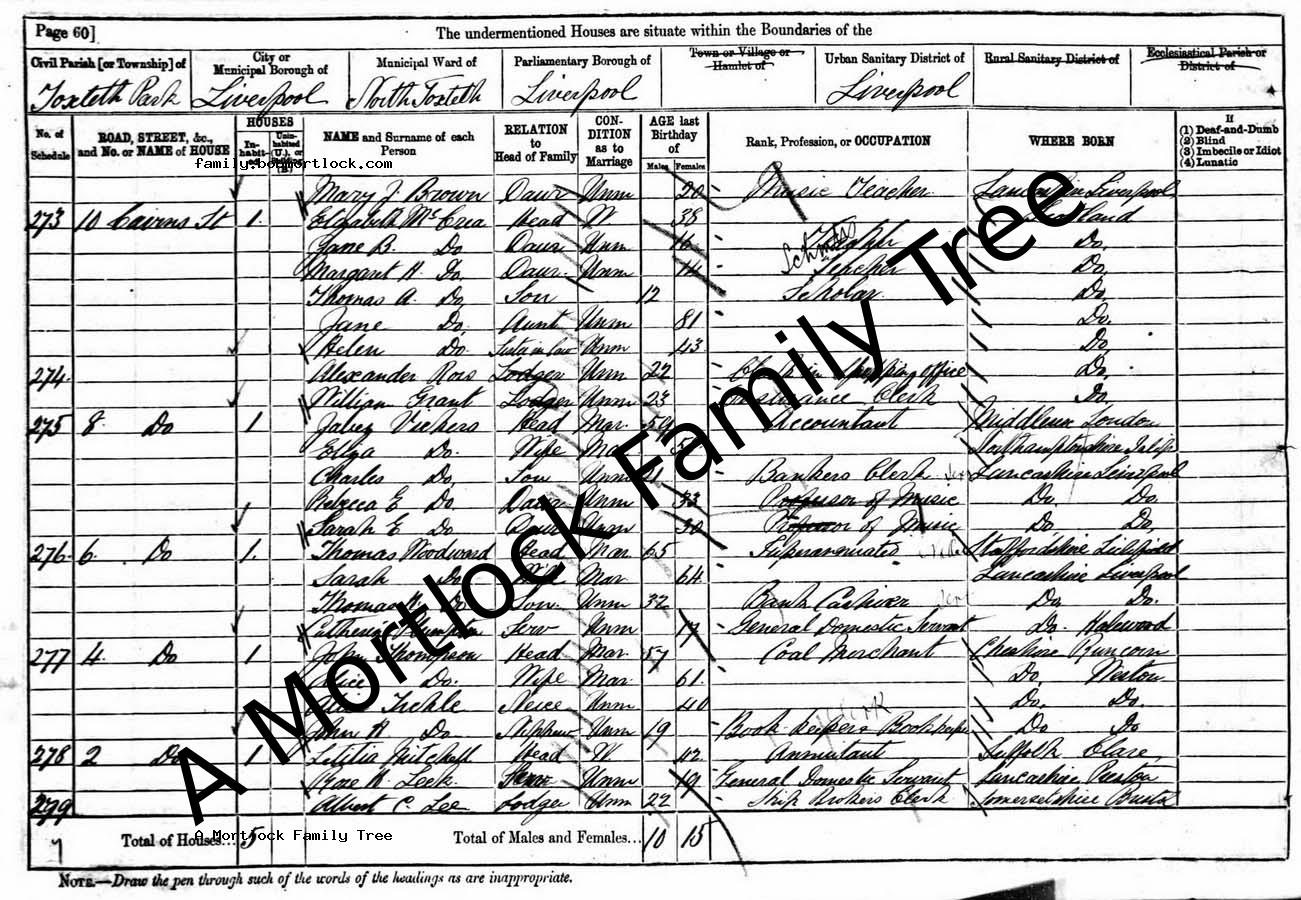 Page 60] The undermentioned Houses are situate within the Boundaries of the
Civil Parish [or Township] of City or Municipal Borough of Municipal Ward of Parliamentary Borough of Town or Village or Hamlet of Urban Sanitary District of Rural Sanitary District of Ecclesiastical Parish or District of
Toxteth Park Liverpool North Toxteth Liverpool Liverpool
No. of Schedule ROAD, STREET, &c., and No. or NAME of HOUSE HOUSES In-habit- Unin-habited (U.), or NAME and Surname of each Person RELATION to Head of Family CON-DITION as to Marriage AGE last Birthday of Males Females Rank, Profession, or OCCUPATION WHERE BORN If (1) Deaf-and-Dumb (2) Blind (3) Imbecile or Idiot (4) Lunatic
family.botmortlock.com
Mary J. Brown Daur Unm 20 Music Teacher Lancashire Liverpool
273 10 Cairns St 1. Elizabeth Mc Crea Head W 38
Jane B. Do Daur Unm 16 Do
Margaret H. Do. Daur. Unm 14 Teacher Do
Thomas A. Do, Son 12 Scholar Do,
Jane Do, Aunt Unm 81 Do,
Helen Do. Sister in law Unm 43 Do,
274 Alexander Ross Lodger Unm 22 Clerk in Shipping Office Do,
William Grant Lodger Unm 23 Insurance Clerk Do,
275 8 Do 1 Jabez Vickers Head Mar. 59 Accountant Middlesex London
Eliza Do. Wife Mar Northamptonshire
Charles Do, Son Unm 21 Bankers Clerk Lancashire Liverpool
Rebecca E Do, Daur Unm 33 Professor of Music Do, Do,
Sarah E Do, Daur Unm 30 Professor of Music Do Do,
276 6. Do 1. Thomas Woodward Head Mar. 65 Superannuated Staffordshire Lichfield
Sarah Do. Wife Mar 64. Lancashire Liverpool
Thomas H. Do Son. Unm 32 Bank Cashier Do, Do.
Catherine Plumpton Serv Unm 17 General Domestic Servant Do. Halewood
277 4. Do 1 John Thompson Head Mar. 57 Coal Merchant Cheshire Runcorn
Alice Do. Wife Mar. 61. Do, Weston
Tickle Neice Unm 40 Do, Do.
John H Do. Nephew Unm 19 Book Keepers Bookkeeper Do Do
278 2 Do 1 Letitia Mitchell Head W. 42. Annuitant Suffolk Clare,
Rose H. Leek Serv Unm 19 General Domestic Servant Lancashire Preston
279 Albert C. Lee Lodger Unm 22 Ship Brokers Clerk Somersetshire Bristol
Total of Houses... 5 Total of Males and Females... 10 15
A Mortlock Family Tree
NOTE.—Draw the pen through such of the words of the headings as are inappropriate.
A Mortlock Family Tree